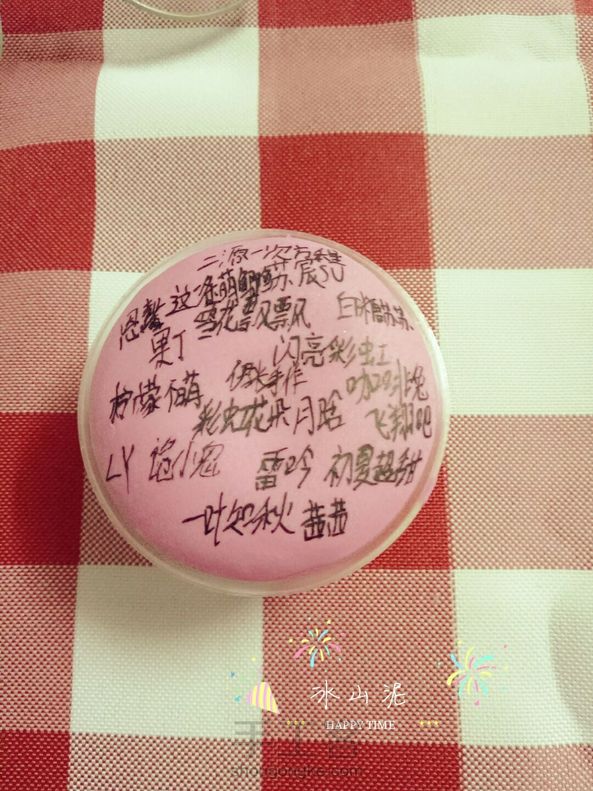 二源一次方程
恩馨 这个条萌 苏宸SU
雪花飘飘
果丁 闪亮彩虹
柠檬不萌 手作 咖啡兔
彩虹花朵 月晗 飞翔吧
LY 范小宓 雷吟 初夏超甜
一叶知秋 茜茜
冰山泥
HAPPY TIME
手工客
shougongke.com